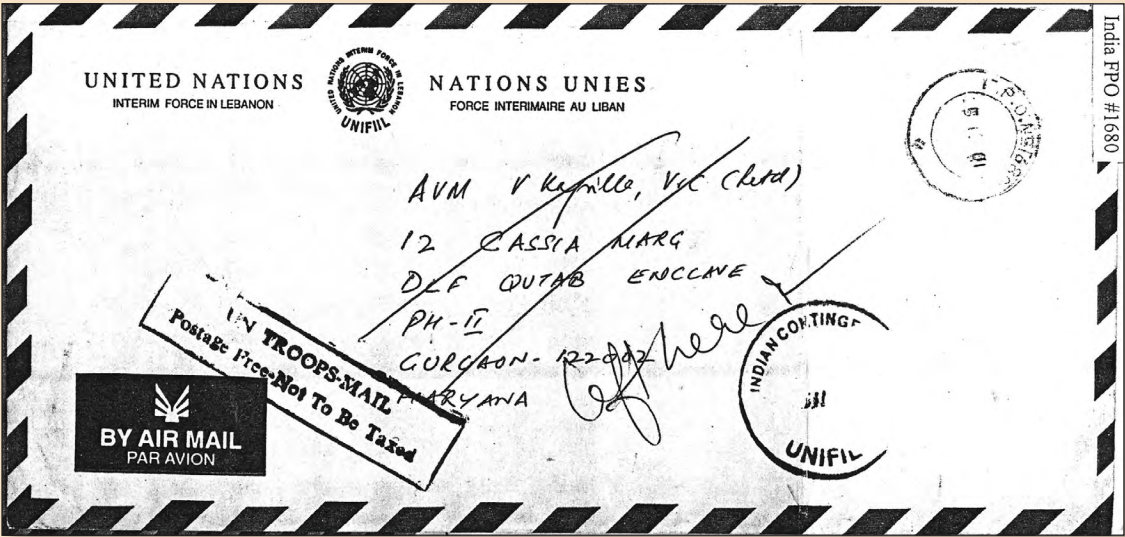 India FPO #1680
UNITED NATIONS
INTERIM FORCE IN LEBANON
UNITED NATIONS INTERIM FORCE IN LEBANON
UNIFIIL
NATIONS UNIES
FORCE INTERIMAIRE AU LIBAN
F.P.O. No 1680
AVM V Kapille, VSC (Retd)
12 CASSIA MARG
DLF QUTAB ENCCLAVE
PH-II
GURGAON-122002
HARYANA
Left here
UN TROOPS-MAIL
Postage Free-Not To Be Taxed
BY AIR MAIL
PAR AVION
INDIAN CONTING
UNIFIL